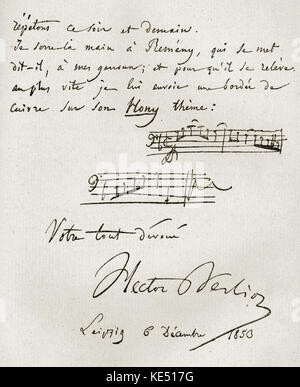 répétons ce soir et demain.
Je serre la main à Remény, qui se met
dit-il, à mes genoux ; et pour qu'il se relève
au plus vite je lui envoie une bordée de
cuivre sur son Hony thème :
Votre tout dévoué
Hector Berlioz
Leipzig 6 Décembre 1853
alamy
KE517G